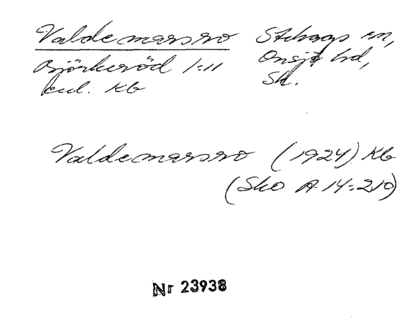 Valdemarsro Stehags sn,
Björkeröd 1:11 Onsjö hd,
enl. Kb Sk.
Valdemarsro (1924) Kb
(Sko A 14:210)
Nr 23938